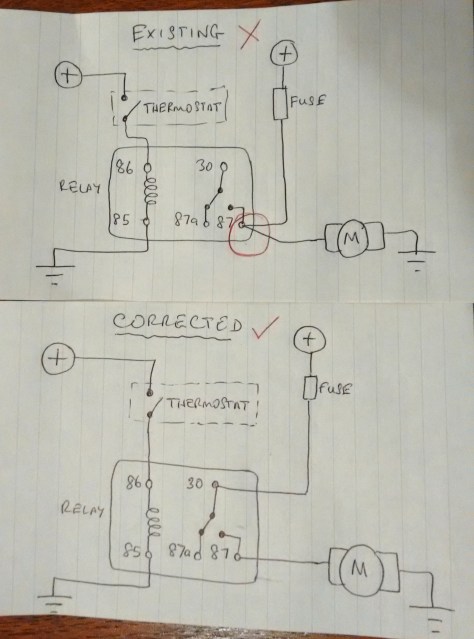 EXISTING
+
+
THERMOSTAT
FUSE
86
30
RELAY
85
87a
87
M
CORRECTED
+
+
THERMOSTAT
FUSE
86
30
RELAY
85
87a
87
M